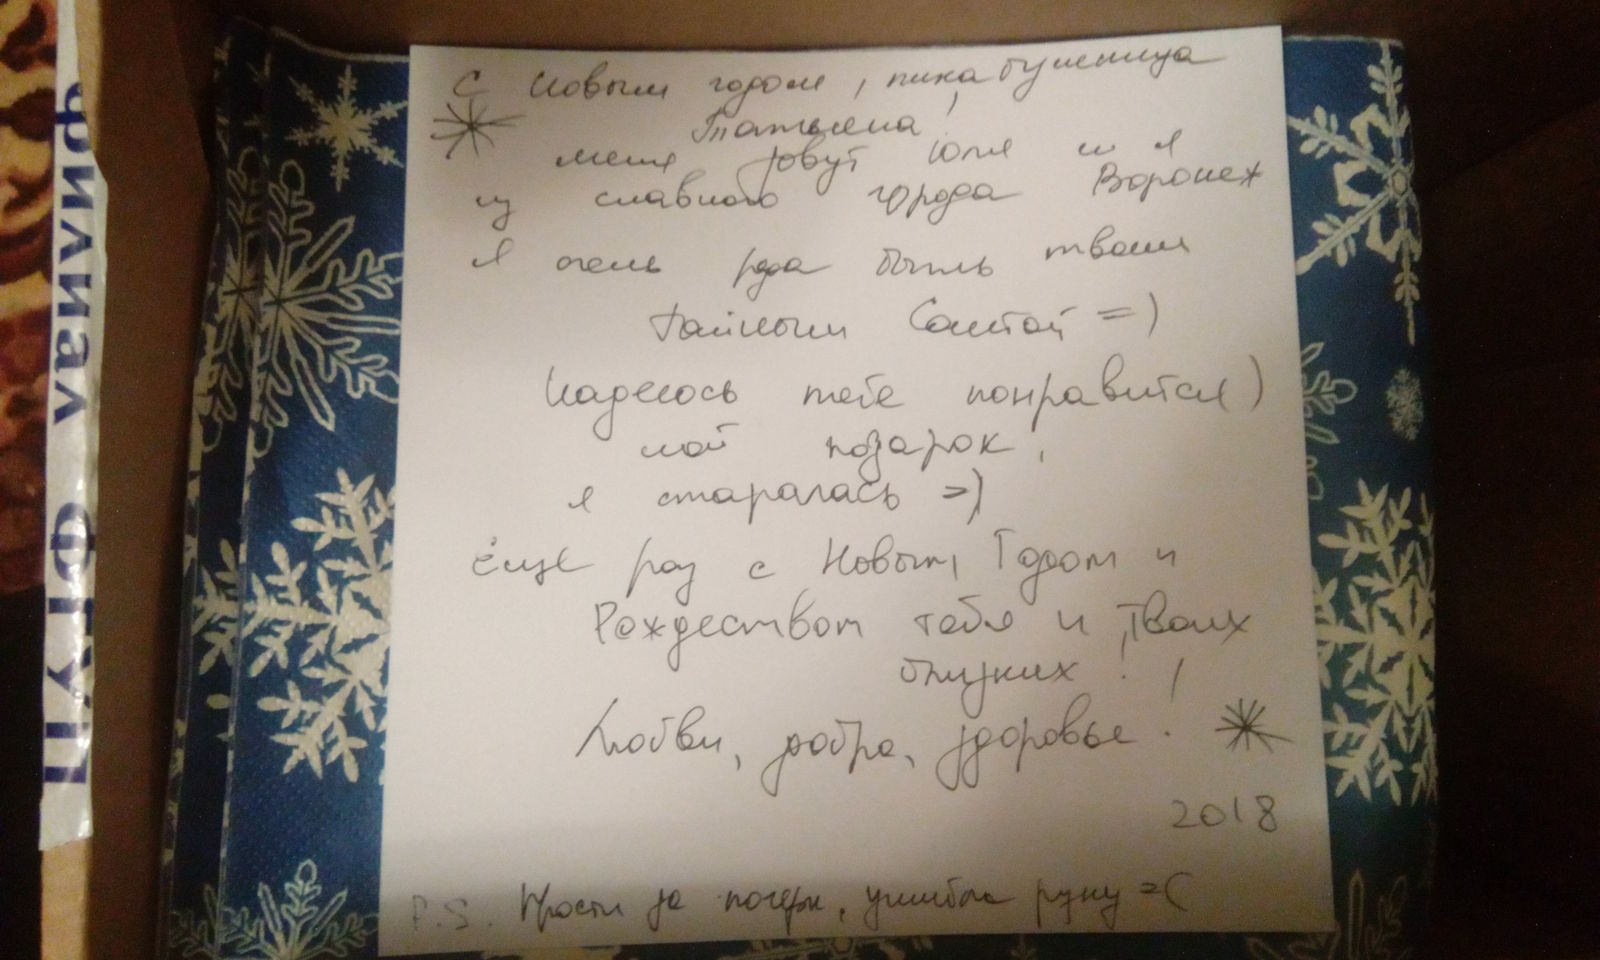 Филиал ФГУП
С Новым годом, пикабушница
Татьяна!
меня зовут Юля и я
из славного города Воронеж
Я очень рада быть твоим
Тайным Сантой =)
Надеюсь тебе понравится)
мой подарок,
я старалась =)
Ещё раз с Новым Годом и
Рождеством тебя и Твоих
близких!
Любви, добра, здоровье!
2018
P.S. Прости за почерк, ушибла руку =(